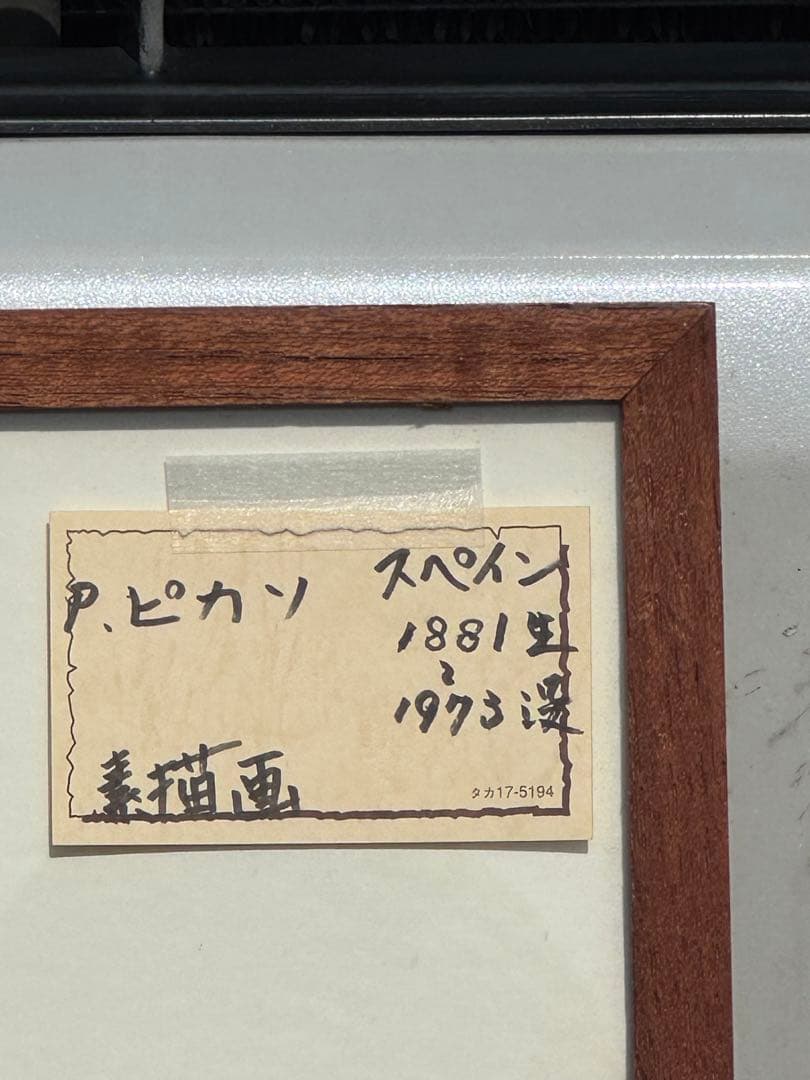 P.ピカソ
スペイン
1881生
〜
1973
素描画
タカ17-5194